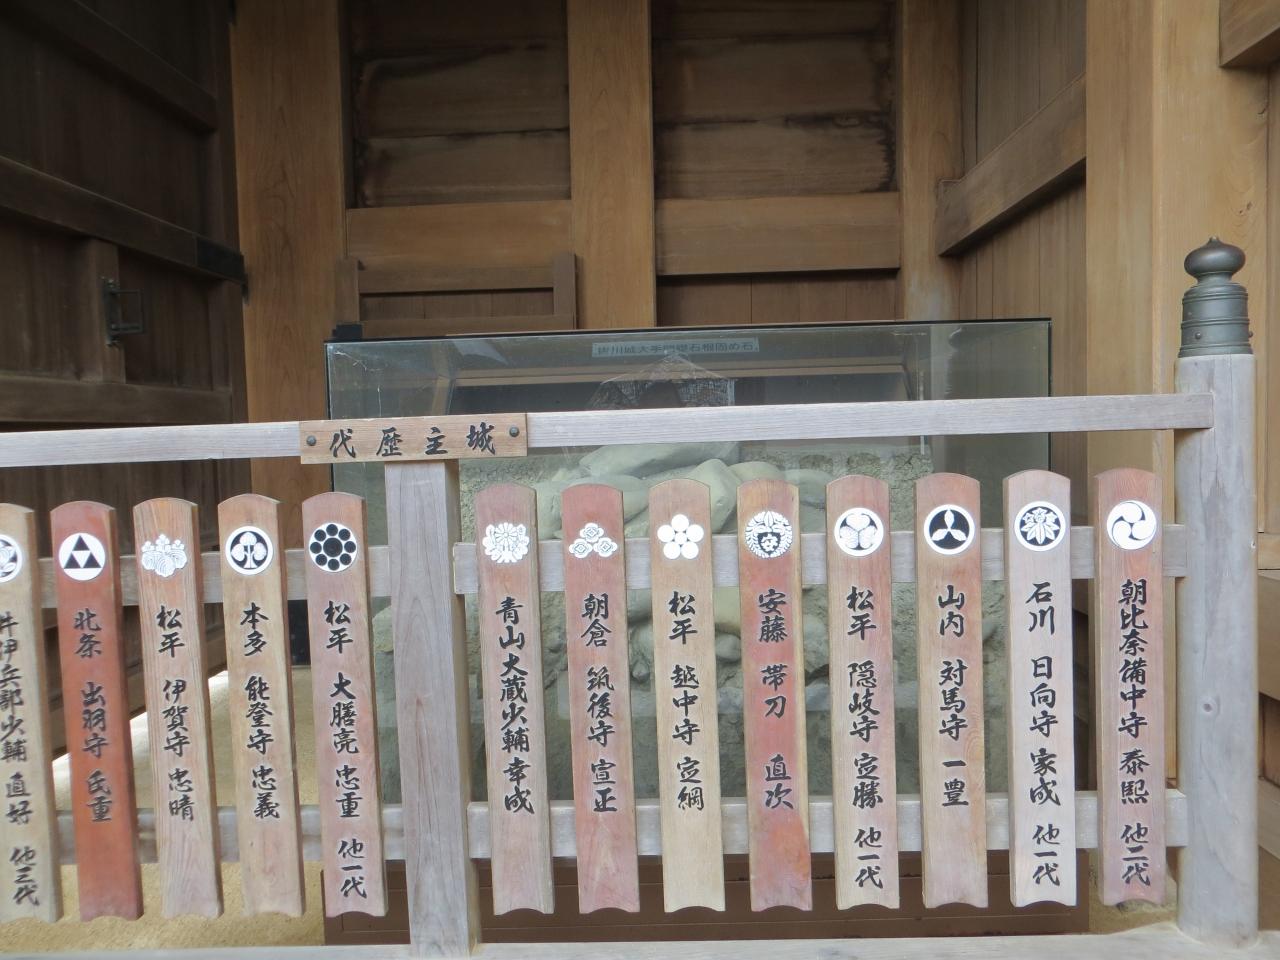 掛川城大手門礎石根固め石
城主歴代
朝比奈備中守 泰熙 他二代
石川 日向守 家成 他一代
山内 対馬守 一豊
松平 隠岐守 定勝 他一代
安藤 帯刀 直次
松平 越中守 定綱
朝倉 筑後守 宣正
青山大蔵少輔 幸成
松平 大膳亮 忠重 他一代
本多 能登守 忠義
松平 伊賀守 忠晴
北条 出羽守 氏重
井伊兵部少輔 直好 他三代